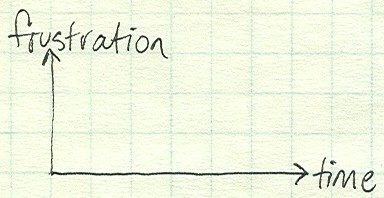 frustration
time